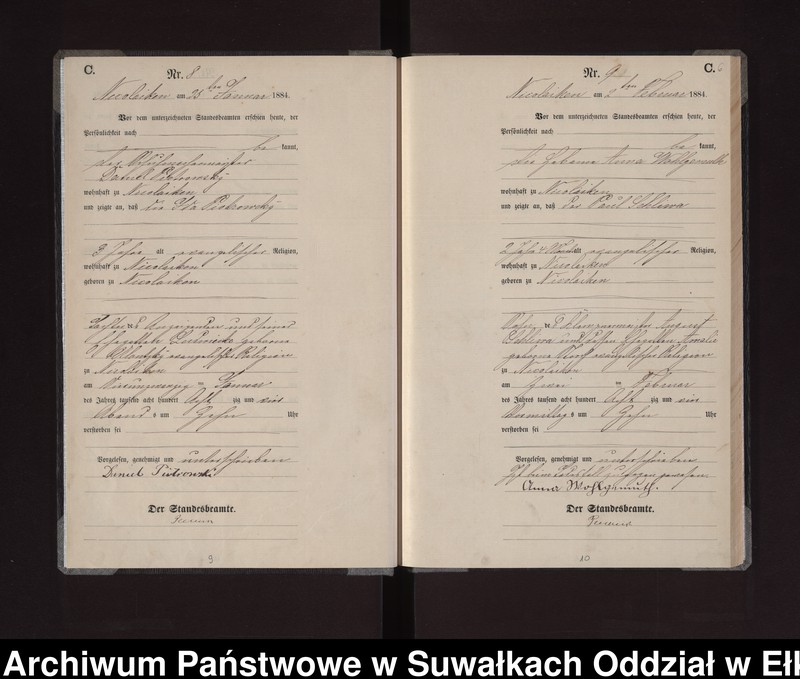 C.
Nr. 8
Nicolaiken am 25ten Januar 1884.
Vor dem unterzeichneten Standesbeamten erschien heute, der
Persönlichkeit nach
be kannt,
der
Daniel Piotrowsky
wohnhaft zu Nicolaiken
und zeigte an, daß die Ida Piotrowsky
3 Jahre alt evangelischer Religion,
wohnhaft zu Nicolaiken
geboren zu Nicolaiken
Tochter des Anzeigenden und seiner
Ehegattin geborene
evangelischer Religion
zu Nicolaiken
am Vierundzwanzig ten Januar
des Jahres tausend acht hundert Acht zig und vier
Abend s um Zehn Uhr
verstorben sei
Vorgelesen, genehmigt und unterschrieben
Daniel Piotrowski
Der Standesbeamte.
9
C. 6
Nr. 9
Nicolaiken am 2ten Februar 1884
Vor dem unterzeichneten Standesbeamten erschien heute, der
Persönlichkeit nach
be kannt,
die Hebamme Anna Wohlgemuth
wohnhaft zu Nicolaiken
und zeigte an, daß der Paul Schliwa
2 Jahr alt evangelischer Religion,
wohnhaft zu Nicolaiken
geboren zu Nicolaiken
Sohn des Klempnermeister August
Schliwa und dessen Ehegattin Amalie
geborene evangelischer Religion
zu Nicolaiken
am Zwei ten Februar
des Jahres tausend acht hundert Acht zig und vier
Vormittag s um Zehn Uhr
verstorben sei
Vorgelesen, genehmigt und unterschrieben
Anna Wohlgemuth.
Der Standesbeamte.
10
Archiwum Państwowe w Suwałkach Oddział w Ełk